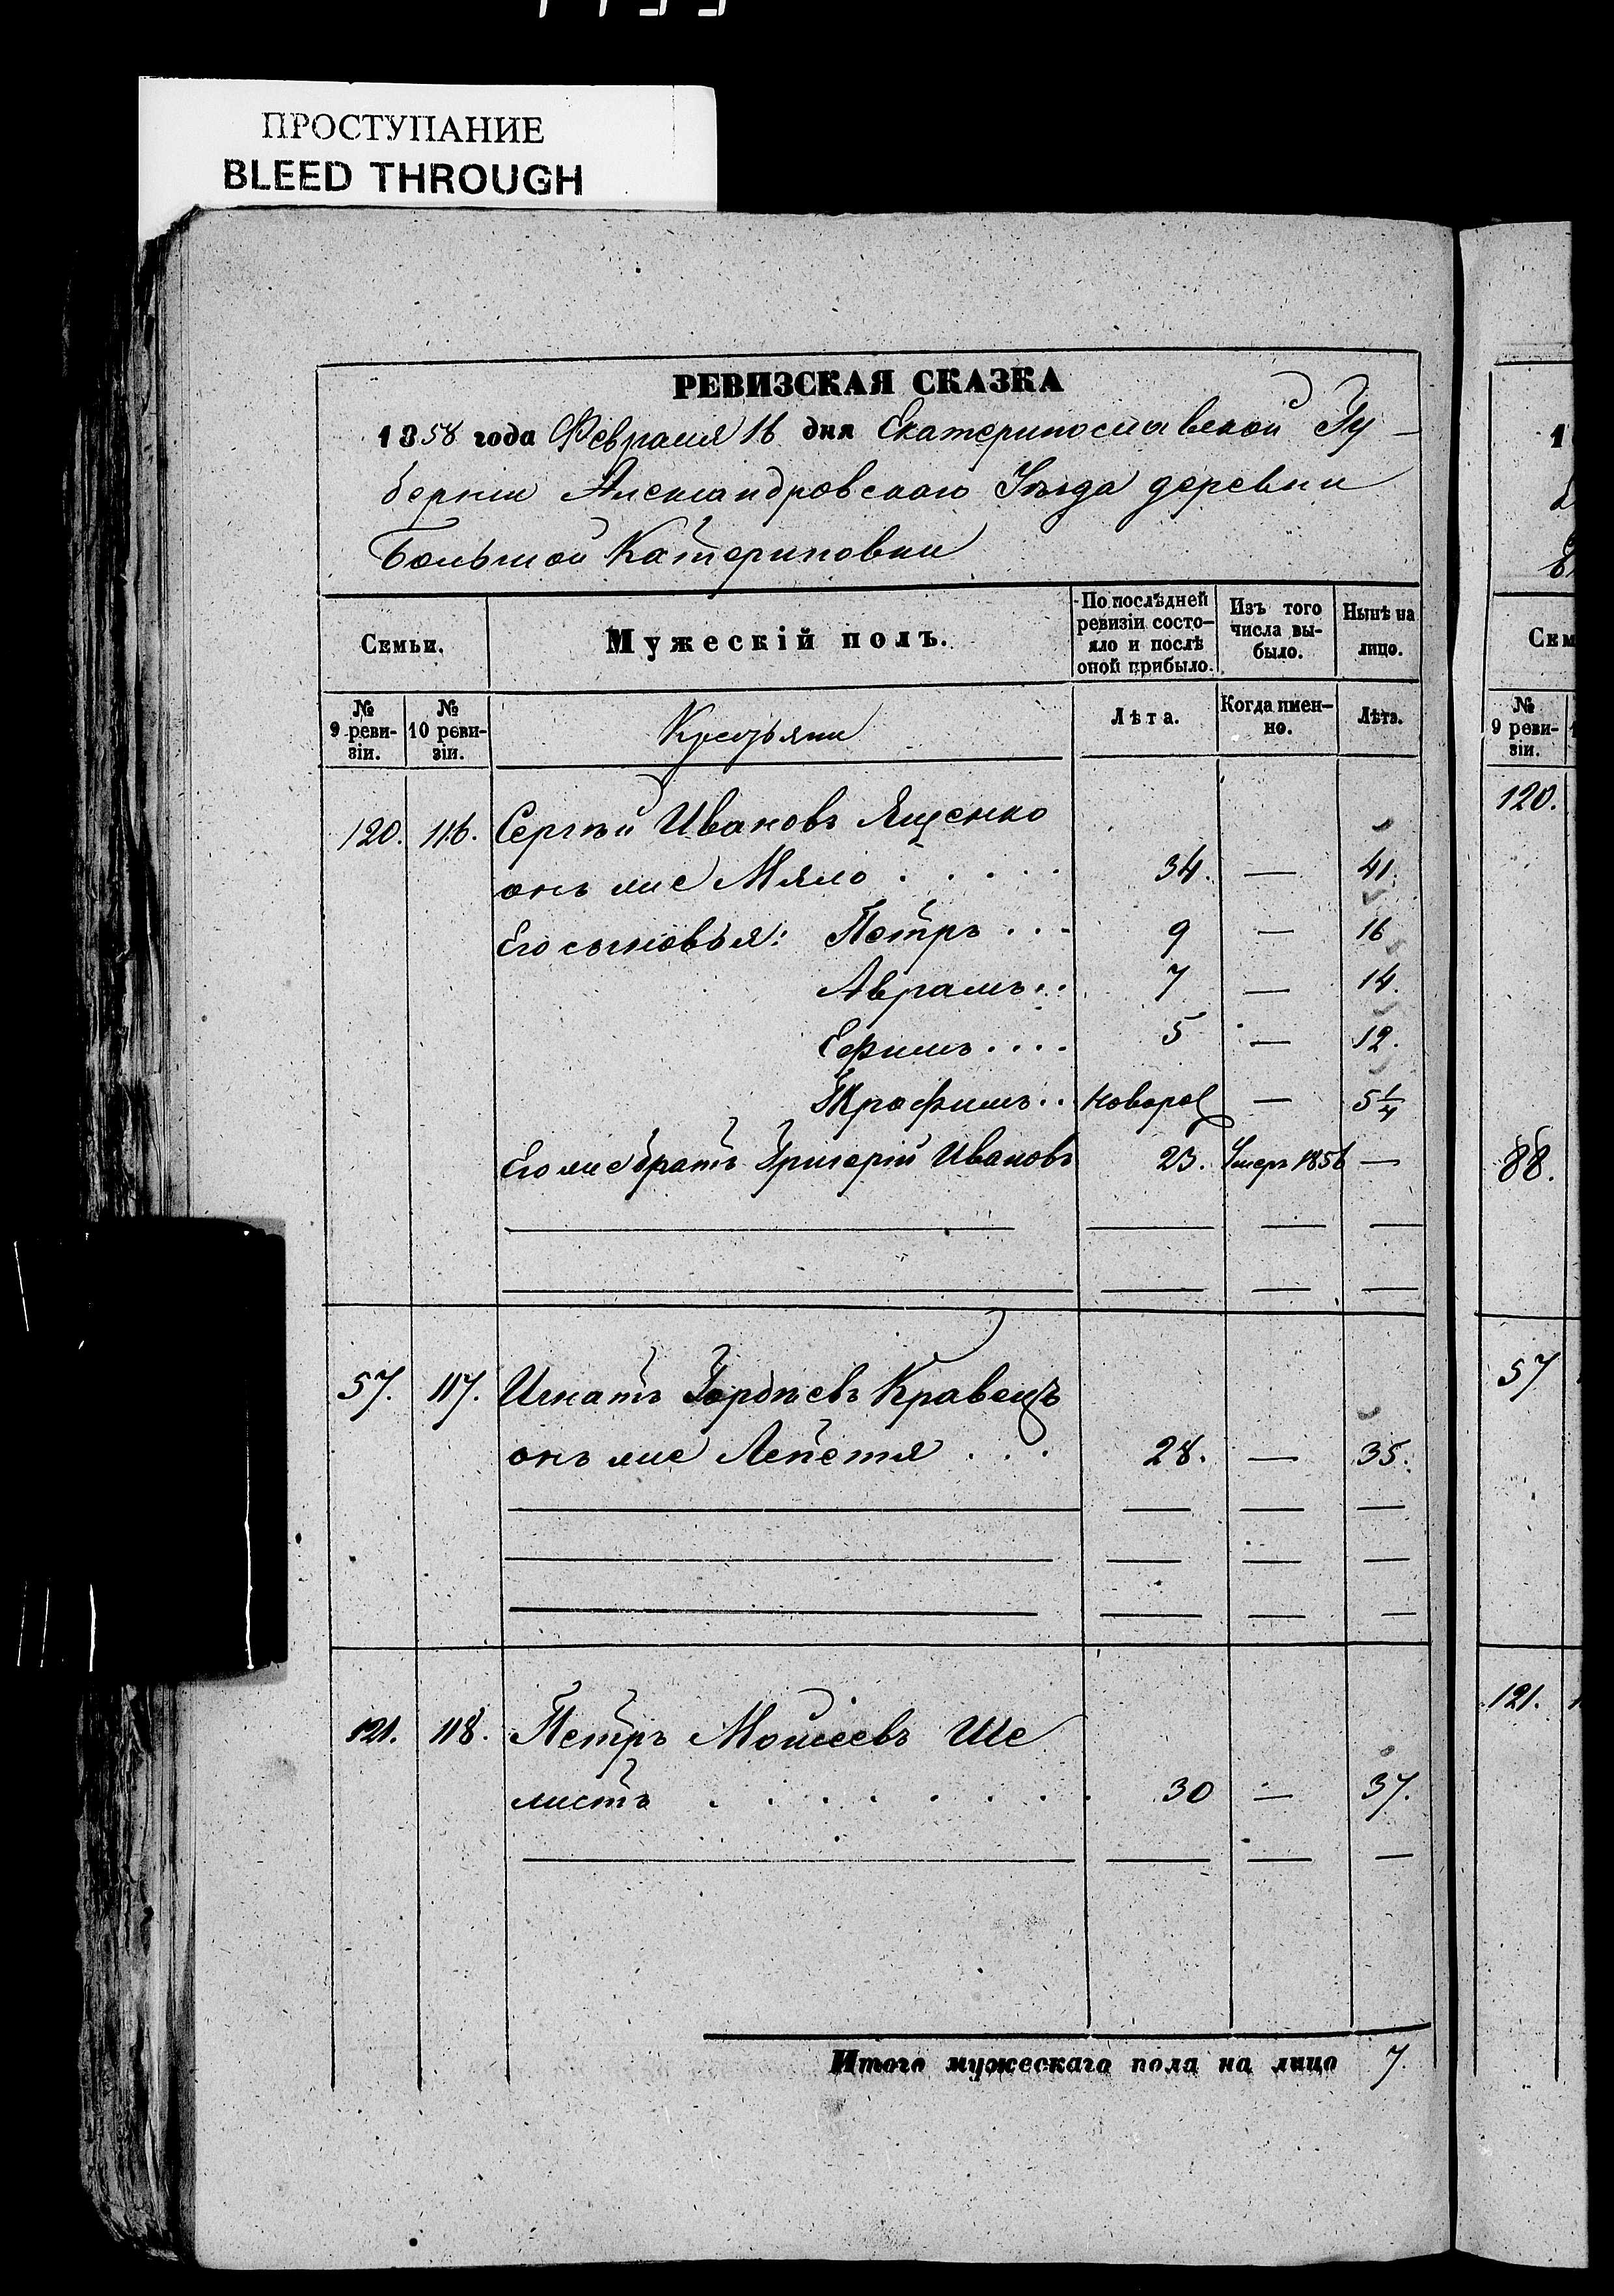 ПРОСТУПАНИЕ
BLEED THROUGH
РЕВИЗСКАЯ СКАЗКА
1858 года Февраля 16 дня Екатеринославской Гу-
берніи Александровскаго Уѣзда деревни
Большой Катериновки
Семьи. Мужескій полъ. По послѣдней ревизіи состо-яло и послѣ оной прибыло. Изъ того числа вы-было. Нынѣ на лицо.
№ 9 реви-зіи. № 10 реви-зіи. Крестьяни Лѣта. Когда имен-но. Лѣта.
120. 116. Сергѣй Ивановъ Ященко
онъ же Мяло . . . . . 34. — 41.
Его сыновья: Петръ . . . 9 — 16
Аврамъ . . 7 — 14.
Ефимъ . . . . 5 — 12.
Трофимъ . . новорож — 5 1/4
Его же братъ Григорій Ивановъ 23. Умеръ 1856 —
57. 117. Игнатъ Гордѣевъ Кравецъ
онъ же Лепетя . . . 28. — 35.
121. 118. Петръ Моисеевъ Ше
листъ . . . . . . . . 30 — 37.
Итого мужескаго пола на лицо 7.
Сем
№ 9 реви-зіи.
120.
88.
57
121.